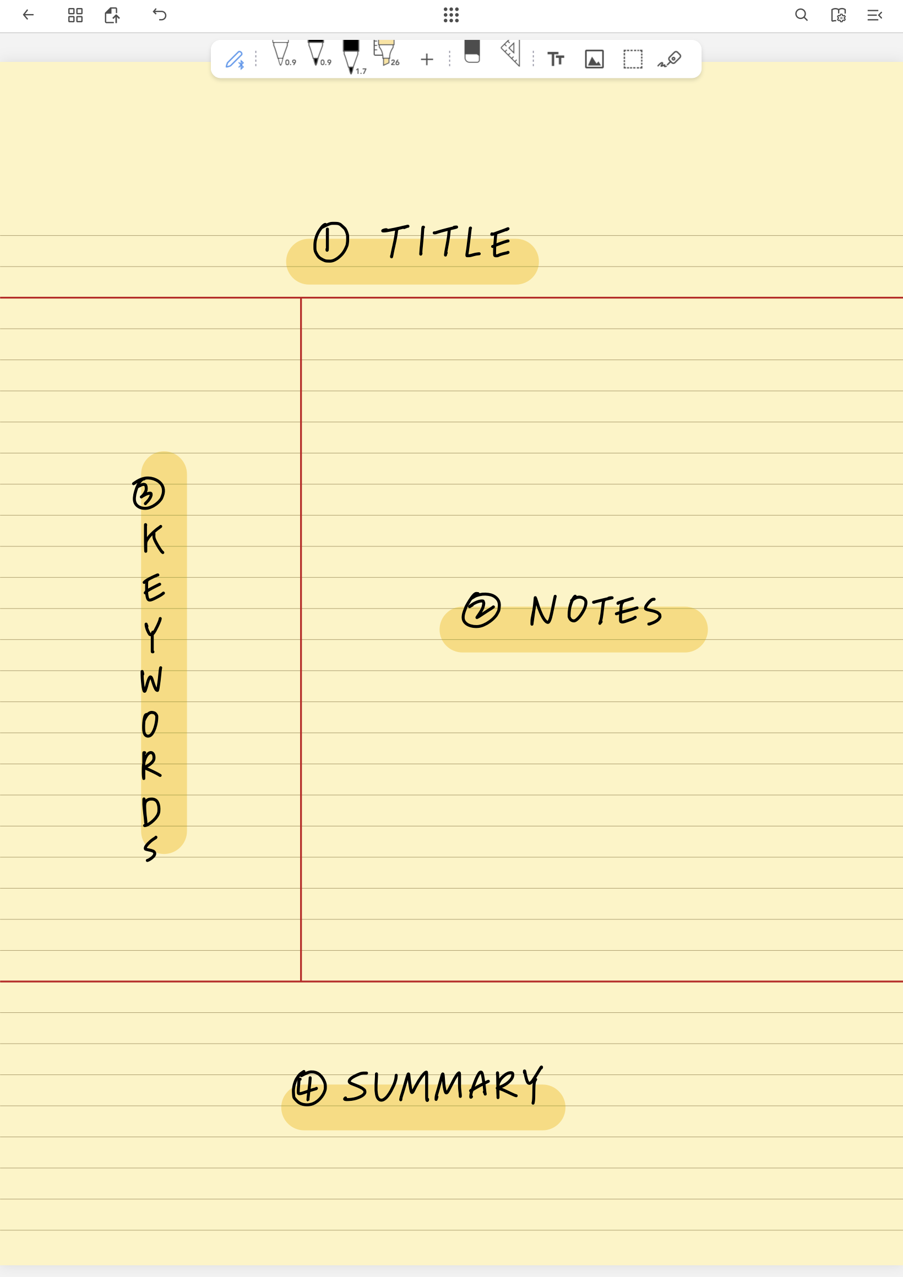 0.9
0.9
1.7
26
Tт
① TITLE
③
K
E
Y
W
O
R
D
S
② NOTES
④ SUMMARY